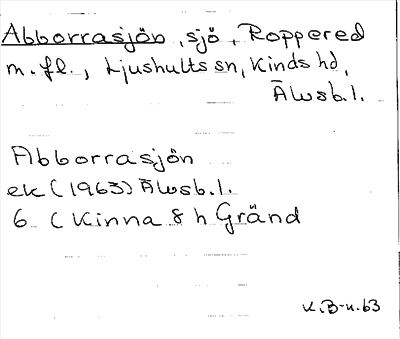 Abborrasjön, sjö, Roppered
m.fl., Ljushults sn, Kinds hd,
Älvsb.l.
Abborrasjön
ek (1963) Älvsb.l.
6 (Kinna 8 h Gränd
K.B-n.63